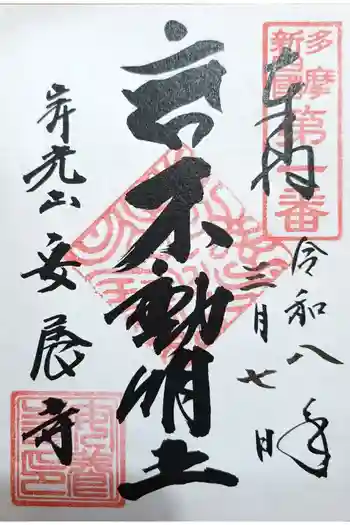 多摩
新四國
第一番
奉拝
令和八年
三月七日
不動明王
岸光山
安養寺